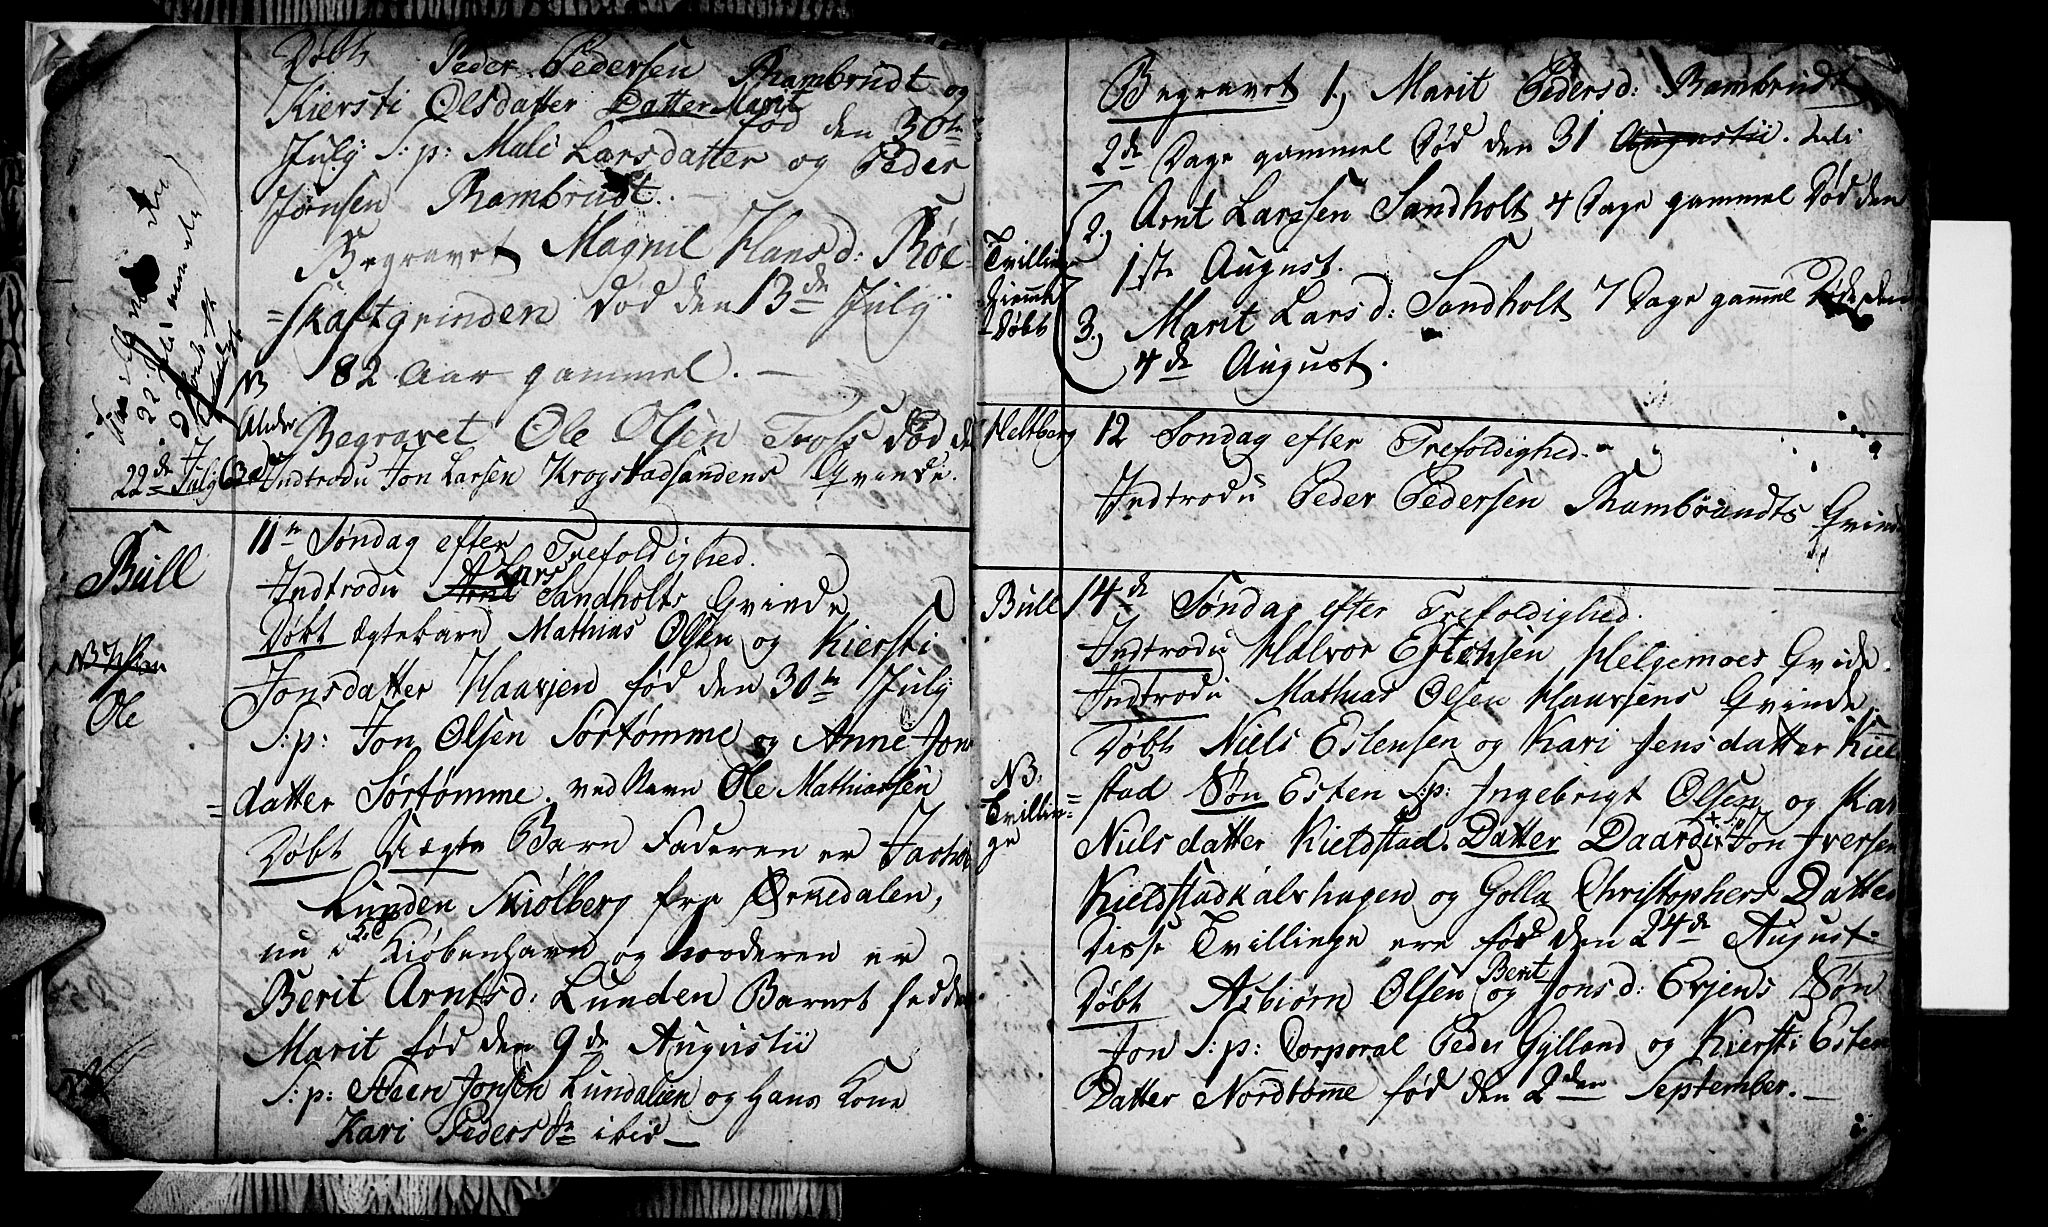 Døbt Peder Pedersen Rambrudt og
Kiersti Olsdatter Datter Marit
fød den 30te
July S:p: Mali Larsdatter og Peder
Jonsen Rambrudt. —
Begravet Magnil Hansd: Røe-
=skaftgrinden Død den 13de July
82 Aar gammel. —
22 Juli
NB
Alder
Begravet Ole Olsen Foss død d
22de July 63
Indtrodu Jon Larsen Krogstadsandens Qvinde.
Bull
11te Søndag efter Trefoldighed.
Lars
Indtrodu Arnt Sandholts Qvinde
Døbt ægtebarn Mathias Olsen og Kiersti
NB
Ole
Jonsdatter Haarjen fød den 30te July
S:p: Jon Olsen Sørtømme og Anne Jons
=datter Sørtømme. ved Navn Ole Mathiassen
Døbt Uægte Barn Faderen er
Lunden Skiølberg fra Ørkedalen,
nu i Kiøbenhavn og Moderen er
Berit Arntsd: Lunden Barnet hedder
Marit fød den 9de Augustii
S:p: Steen Jonsen Lundalien og Hans Kone
Kari Pedersdr ibid —
Begravet 1.) Marit Pedersd: Rambrudt
2de Dage gammel Død den 31 Augustii. Juli
2.) Arnt Larssen Sandholt 4 Dage gammel Død den
1ste August.
Tvillinge
Hiemme
Døbt
3.) Marit Larsd: Sandholt 7 Dage gammel Døde den
4de August.
Heltberg
12 Søndag efter Trefoldighed.
Indtrodu Peder Pedersen Rambrandts Qvinde
Bull
14de Søndag efter Trefoldighed.
Indtrodu Halvor Estensen Helgemoes Qvide.
Indtrodu Mathias Olsen Haarjens Qvinde.
Døbt Niels Estensen og Kari Jensdatter Kiel
NB.
Tvillin=
ge
=stad Søn Esten S:p: Ingebrigt Olsen og Kari
Nielsdatter Kieldstad. Datter Daardi Jon Iversen
Kieldstadkalvhagen og Golla Christophers Datter
Disse Tvillinge ere fød den 24de August
Døbt Asbiørn Olsen og Berit Jonsd: Evjens Søn
Jon S:p: Corporal Peder Gylland og Kiersti Esten
Datter Nordtømme fød den 2den September. —